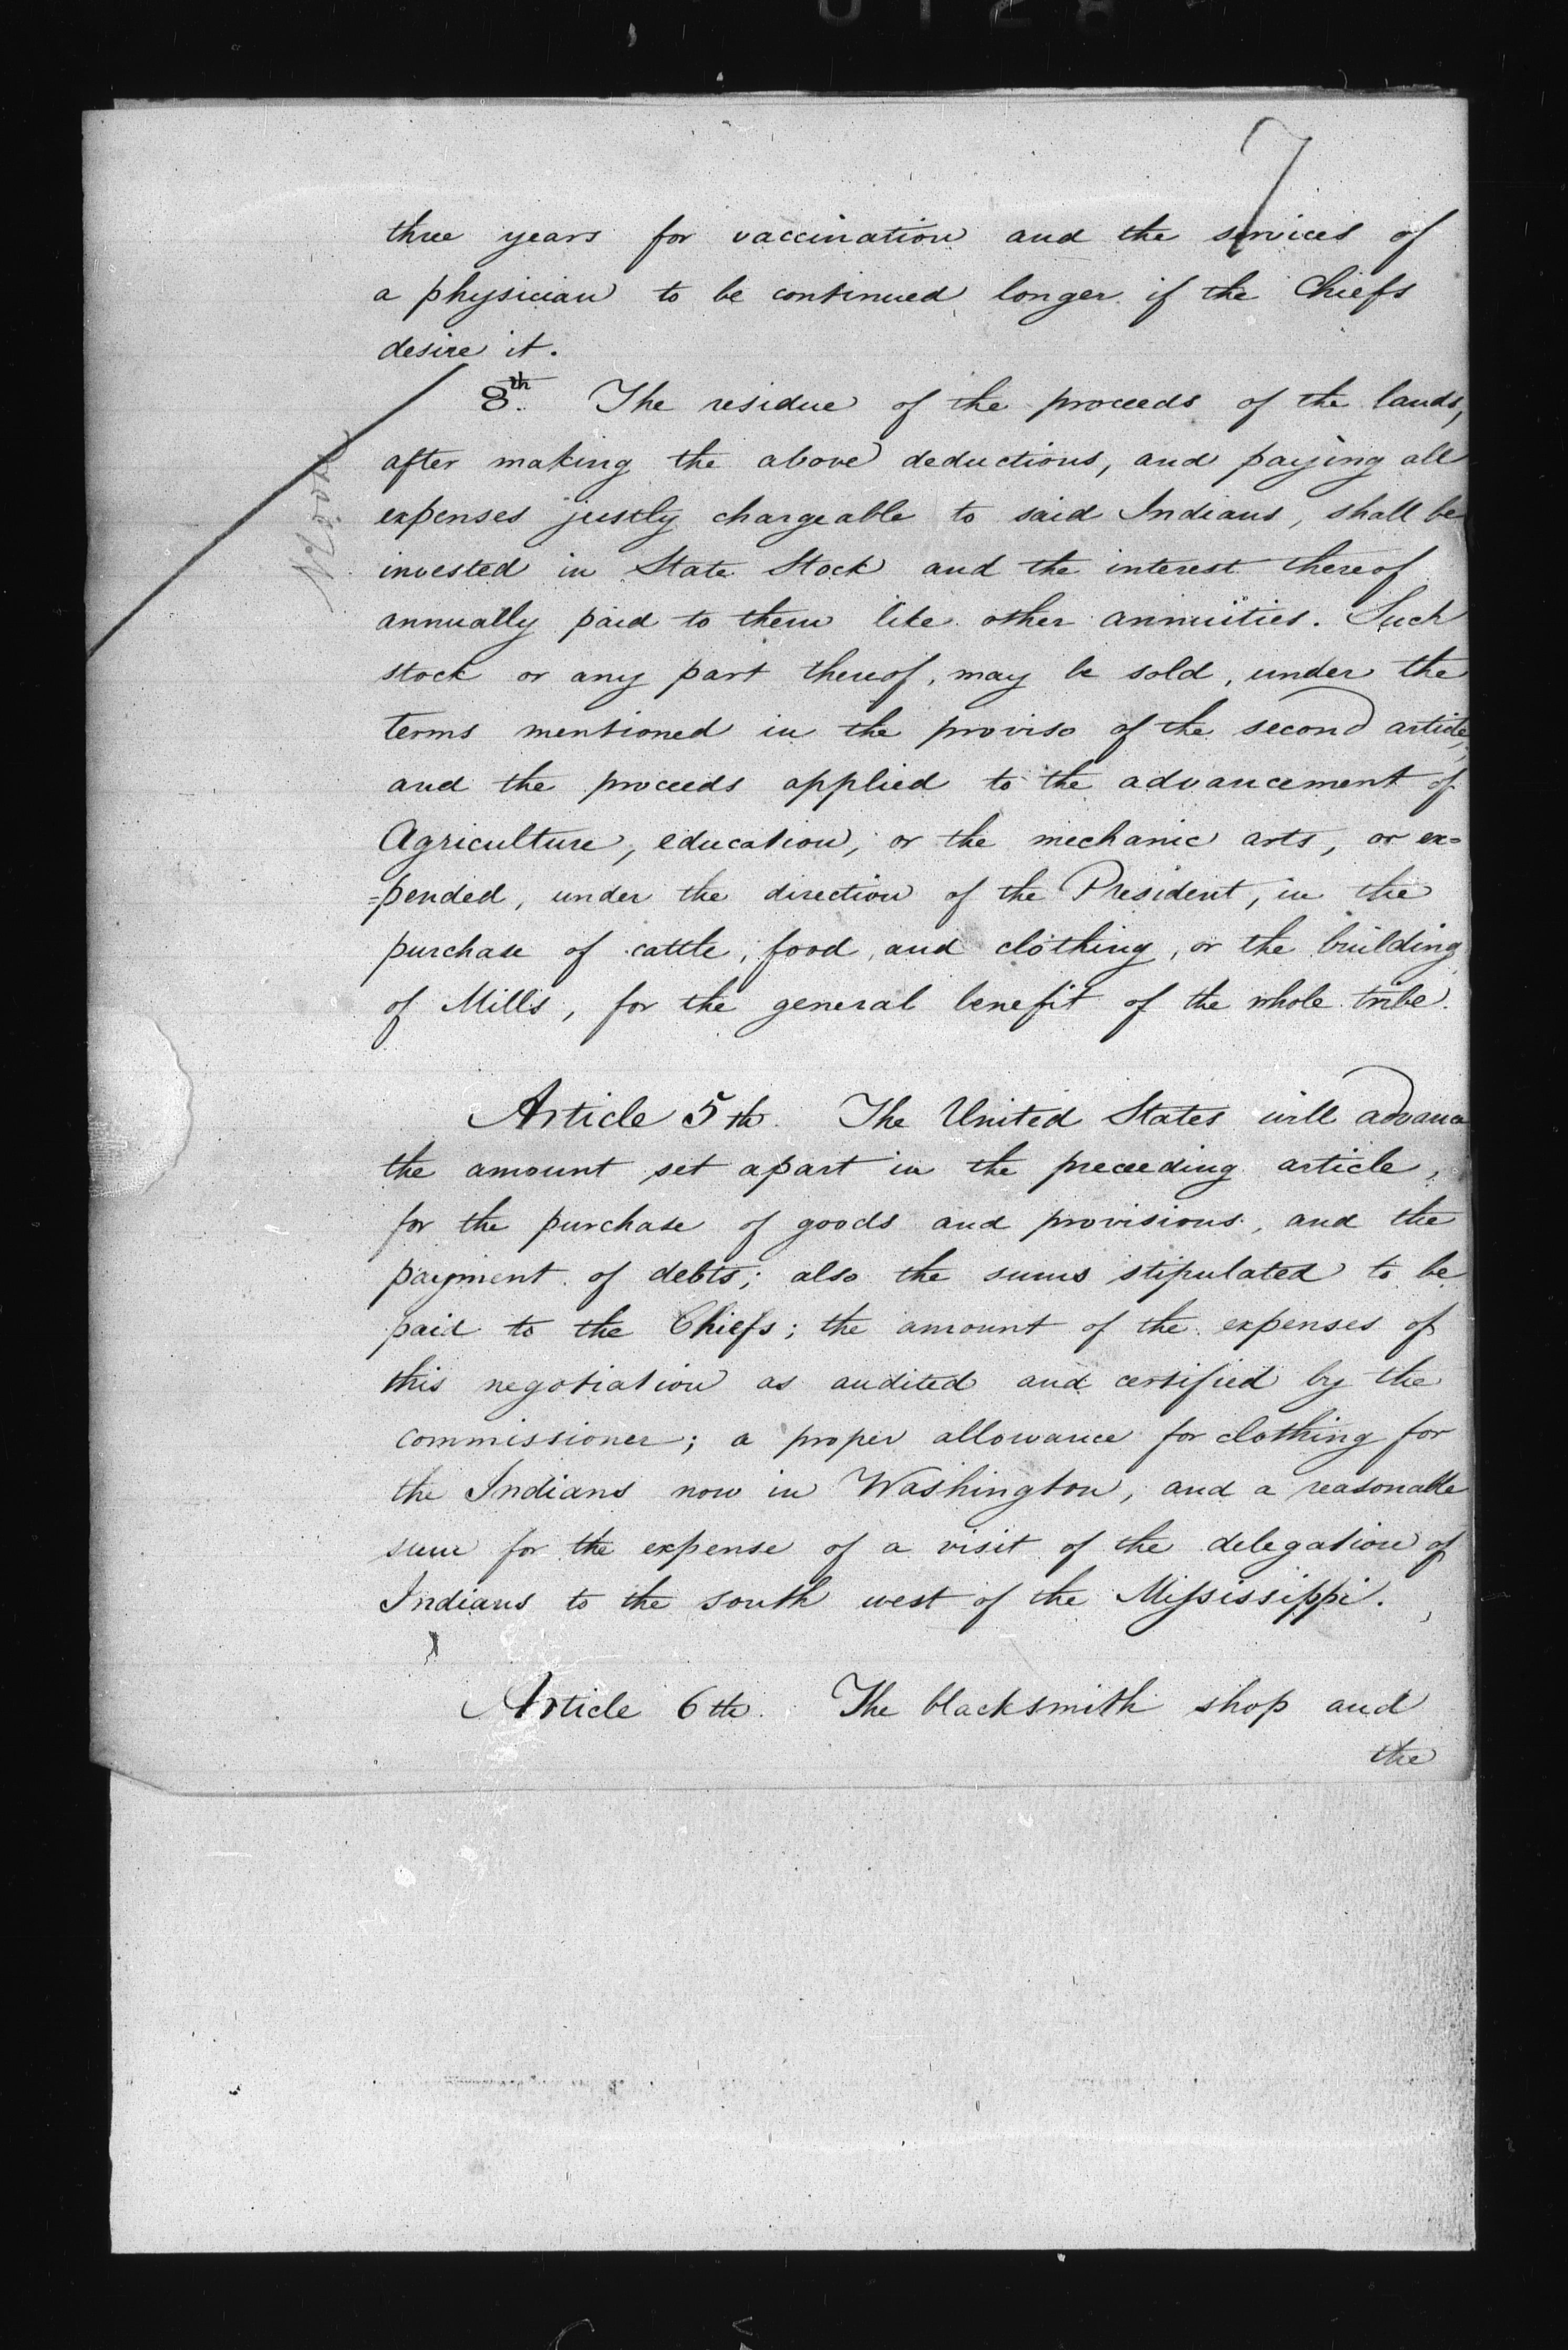 7
three years for vaccination and the services of
a physician to be continued longer if the Chiefs
desire it.
8th. The residue of the proceeds of the lands,
after making the above deductions, and paying all
expenses justly chargeable to said Indians, shall be
invested in State Stock and the interest thereof
annually paid to them like other annuities. Such
stock or any part thereof, may be sold, under the
terms mentioned in the proviso of the second article,
and the proceeds applied to the advancement of
Agriculture, education, or the mechanic arts, or ex=
=pended, under the direction of the President, in the
purchase of cattle, food, and clothing, or the building
of Mills, for the general benefit of the whole tribe.
Article 5th. The United States will advance
the amount set apart in the preceeding article,
for the purchase of goods and provisions, and the
payment of debts; also the sums stipulated to be
paid to the Chiefs; the amount of the expenses of
this negotiation as audited and certified by the
commissioner; a proper allowance for clothing for
the Indians now in Washington, and a reasonable
sum for the expense of a visit of the delegation of
Indians to the south west of the Mississippi.
Article 6th. The blacksmith shop and
the